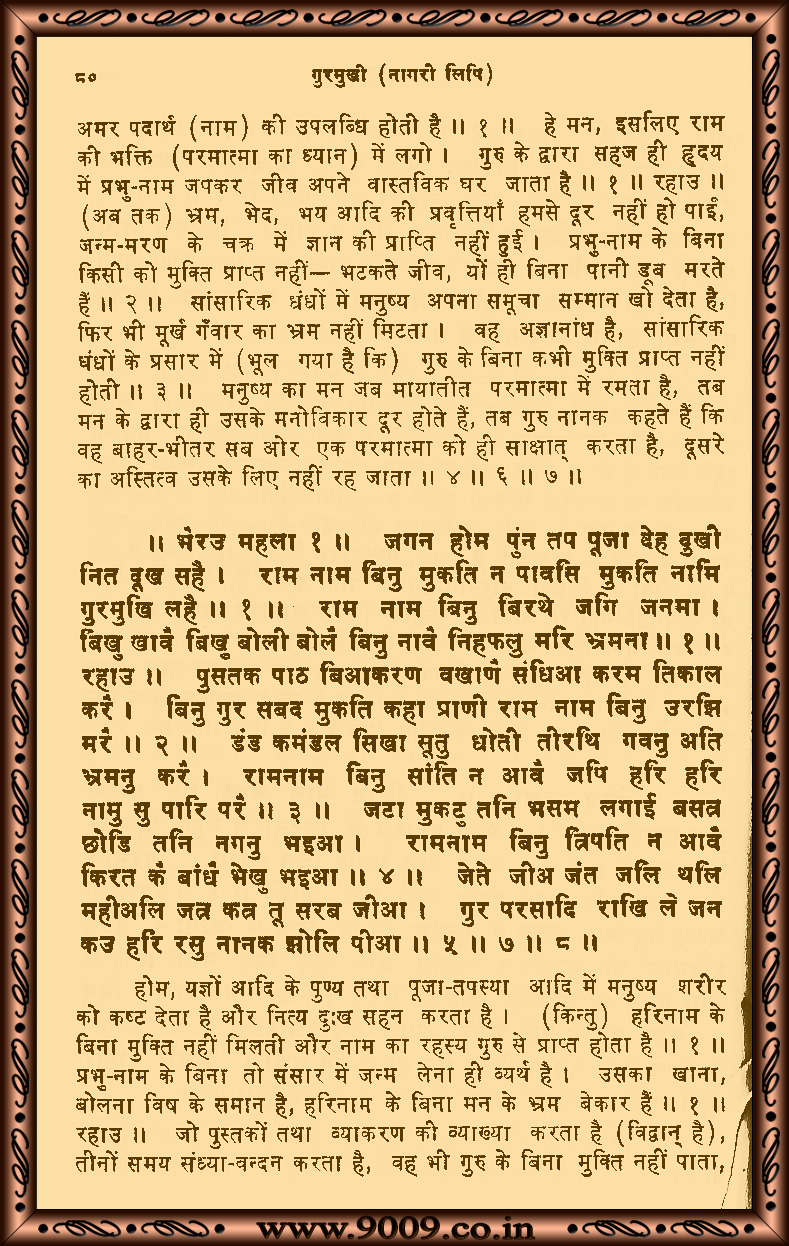 ८० गुरमुखी (नागरी लिपि)
अमर पदार्थ (नाम) की उपलब्धि होती है ॥ १ ॥ हे मन, इसलिए राम
की भक्ति (परमात्मा का ध्यान) में लगो । गुरु के द्वारा सहज ही हृदय
में प्रभु-नाम जपकर जीव अपने वास्तविक घर जाता है ॥ १ ॥ रहाउ ॥
(अब तक) भ्रम, भेद, भय आदि की प्रवृत्तियाँ हमसे दूर नहीं हो पाईं,
जन्म-मरण के चक्र में ज्ञान की प्राप्ति नहीं हुई । प्रभु-नाम के बिना
किसी को मुक्ति प्राप्त नहीं— भटकते जीव, यों ही बिना पानी डूब मरते
हैं ॥ २ ॥ सांसारिक धंधों में मनुष्य अपना समूचा सम्मान खो देता है,
फिर भी मूर्ख गँवार का भ्रम नहीं मिटता । वह अज्ञानांध है, सांसारिक
धंधों के प्रसार में (भूल गया है कि) गुरु के बिना कभी मुक्ति प्राप्त नहीं
होती ॥ ३ ॥ मनुष्य का मन जब मायातीत परमात्मा में रमता है, तब
मन के द्वारा ही उसके मनोविकार दूर होते हैं, तब गुरु नानक कहते हैं कि
वह बाहर-भीतर सब ओर एक परमात्मा को ही साक्षात् करता है, दूसरे
का अस्तित्व उसके लिए नहीं रह जाता ॥ ४ ॥ ६ ॥ ७ ॥
॥ भैरउ महला १ ॥ जगन होम पुंन तप पूजा देह दुखी
नित दूख सहै । राम नाम बिनु मुकति न पावसि मुकति नामि
गुरमुखि लहै ॥ १ ॥ राम नाम बिनु बिरथे जगि जनमा ।
बिखु खावै बिखु बोली बोलै बिनु नावै निहफलु मरि भ्रमना ॥ १ ॥
रहाउ ॥ पुसतक पाठ बिआकरण वखाणै संधिआ करम तिकाल
करै । बिनु गुर सबद मुकति कहा प्राणी राम नाम बिनु उरझि
मरै ॥ २ ॥ डंड कमंडल सिखा सूतु धोती तीरथि गवनु अति
भ्रमनु करै । रामनाम बिनु सांति न आवै जपि हरि हरि
नामु सु पारि परै ॥ ३ ॥ जटा मुकटु तनि भसम लगाई बसत्र
छोडि तनि नगनु भइआ । रामनाम बिनु त्रिपति न आवै
किरत कै बांधै भेखु भइआ ॥ ४ ॥ जेते जीअ जंत जलि थलि
महीअलि जत्र कत्र तू सरब जीआ । गुर परसादि राखि ले जन
कउ हरि रसु नानक झोलि पीआ ॥ ५ ॥ ७ ॥ ८ ॥
होम, यज्ञों आदि के पुण्य तथा पूजा-तपस्या आदि में मनुष्य शरीर
को कष्ट देता है और नित्य दुःख सहन करता है । (किन्तु) हरिनाम के
बिना मुक्ति नहीं मिलती और नाम का रहस्य गुरु से प्राप्त होता है ॥ १ ॥
प्रभु-नाम के बिना तो संसार में जन्म लेना ही व्यर्थ है । उसका खाना,
बोलना विष के समान है, हरिनाम के बिना मन के भ्रम बेकार हैं ॥ १ ॥
रहाउ ॥ जो पुस्तकों तथा व्याकरण की व्याख्या करता है (विद्वान् है),
तीनों समय संध्या-वन्दन करता है, वह भी गुरु के बिना मुक्ति नहीं पाता,
www.9009.co.in